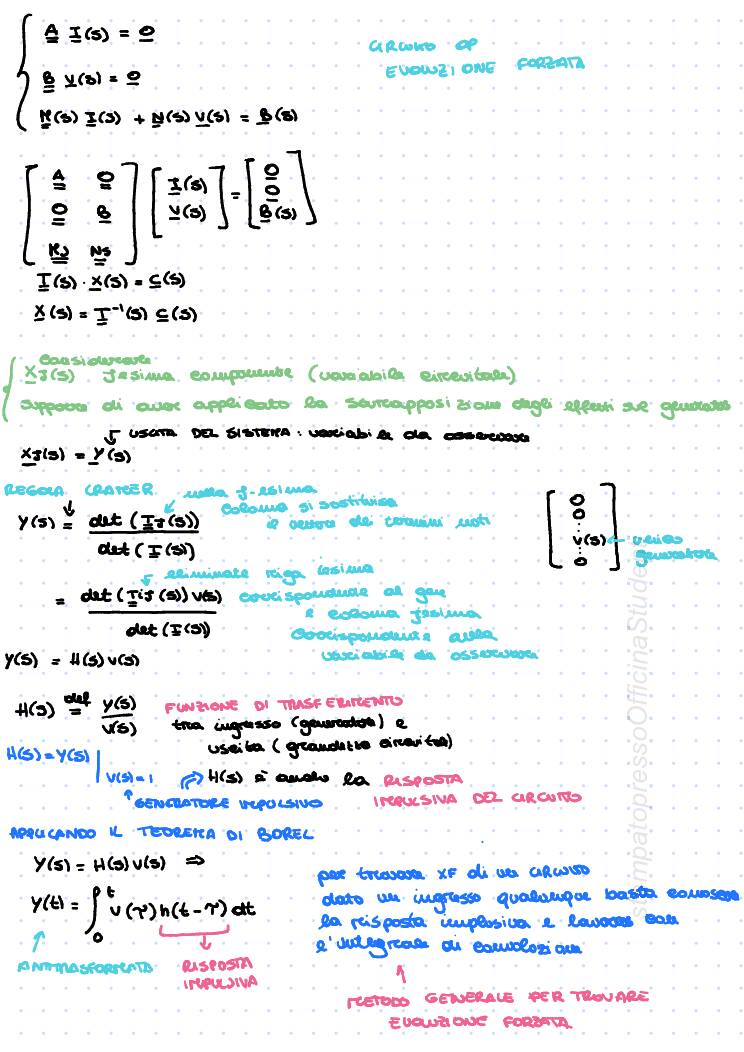 A I(s) = 0
CIRCUITO OP
EVOLUZIONE FORZATA
B V(s) = 0
M(s) I(s) + N(s) V(s) = B(s)
A 0
0 B
Ms Ns
I(s)
V(s)
=
0
0
B(s)
T(s) · X(s) = C(s)
X(s) = T⁻¹(s) C(s)
considerare
XJ(s) Jesima componente (variabile circuitale)
supporre di aver applicato la sovrapposizione degli effetti sui generatori
↓ USCITA DEL SISTEMA: variabile da osservare
XJ(s) = Y(s)
REGOLA CRAMER
nella J-esima
colonna si sostituisce
il vettore dei termini noti
Y(s) = det (TJ(s)) / det (T(s))
0
0
⋮
V(s) ← unico generatore
⋮
0
eliminate riga iesima
= det (Tij(s)) V(s) / det (T(s))
corrispondente al gen
e colonna Jesima
corrispondente alla
variabile da osservare
Y(s) = H(s) V(s)
H(s) def= Y(s) / V(s) FUNZIONE DI TRASFERIMENTO
tra ingresso (generatore) e
uscita (grandezza circuitale)
H(s) = Y(s) | V(s) = 1 ⇒ H(s) è anche la RISPOSTA
IMPULSIVA DEL CIRCUITO
↑ GENERATORE IMPULSIVO
APPLICANDO IL TEOREMA DI BOREL
Y(s) = H(s) V(s) ⇒
Y(t) = ∫₀ᵗ V(τ) h(t - τ) dt
ANTITRASFORMATA
RISPOSTA
IMPULSIVA
per trovare XF di un CIRCUITO
dato un ingresso qualunque basta conoscere
la risposta implosiva e lavorare con
l'integrale di convoluzione
METODO GENERALE PER TROVARE
EVOLUZIONE FORZATA
stampatopressoOfficinaStude